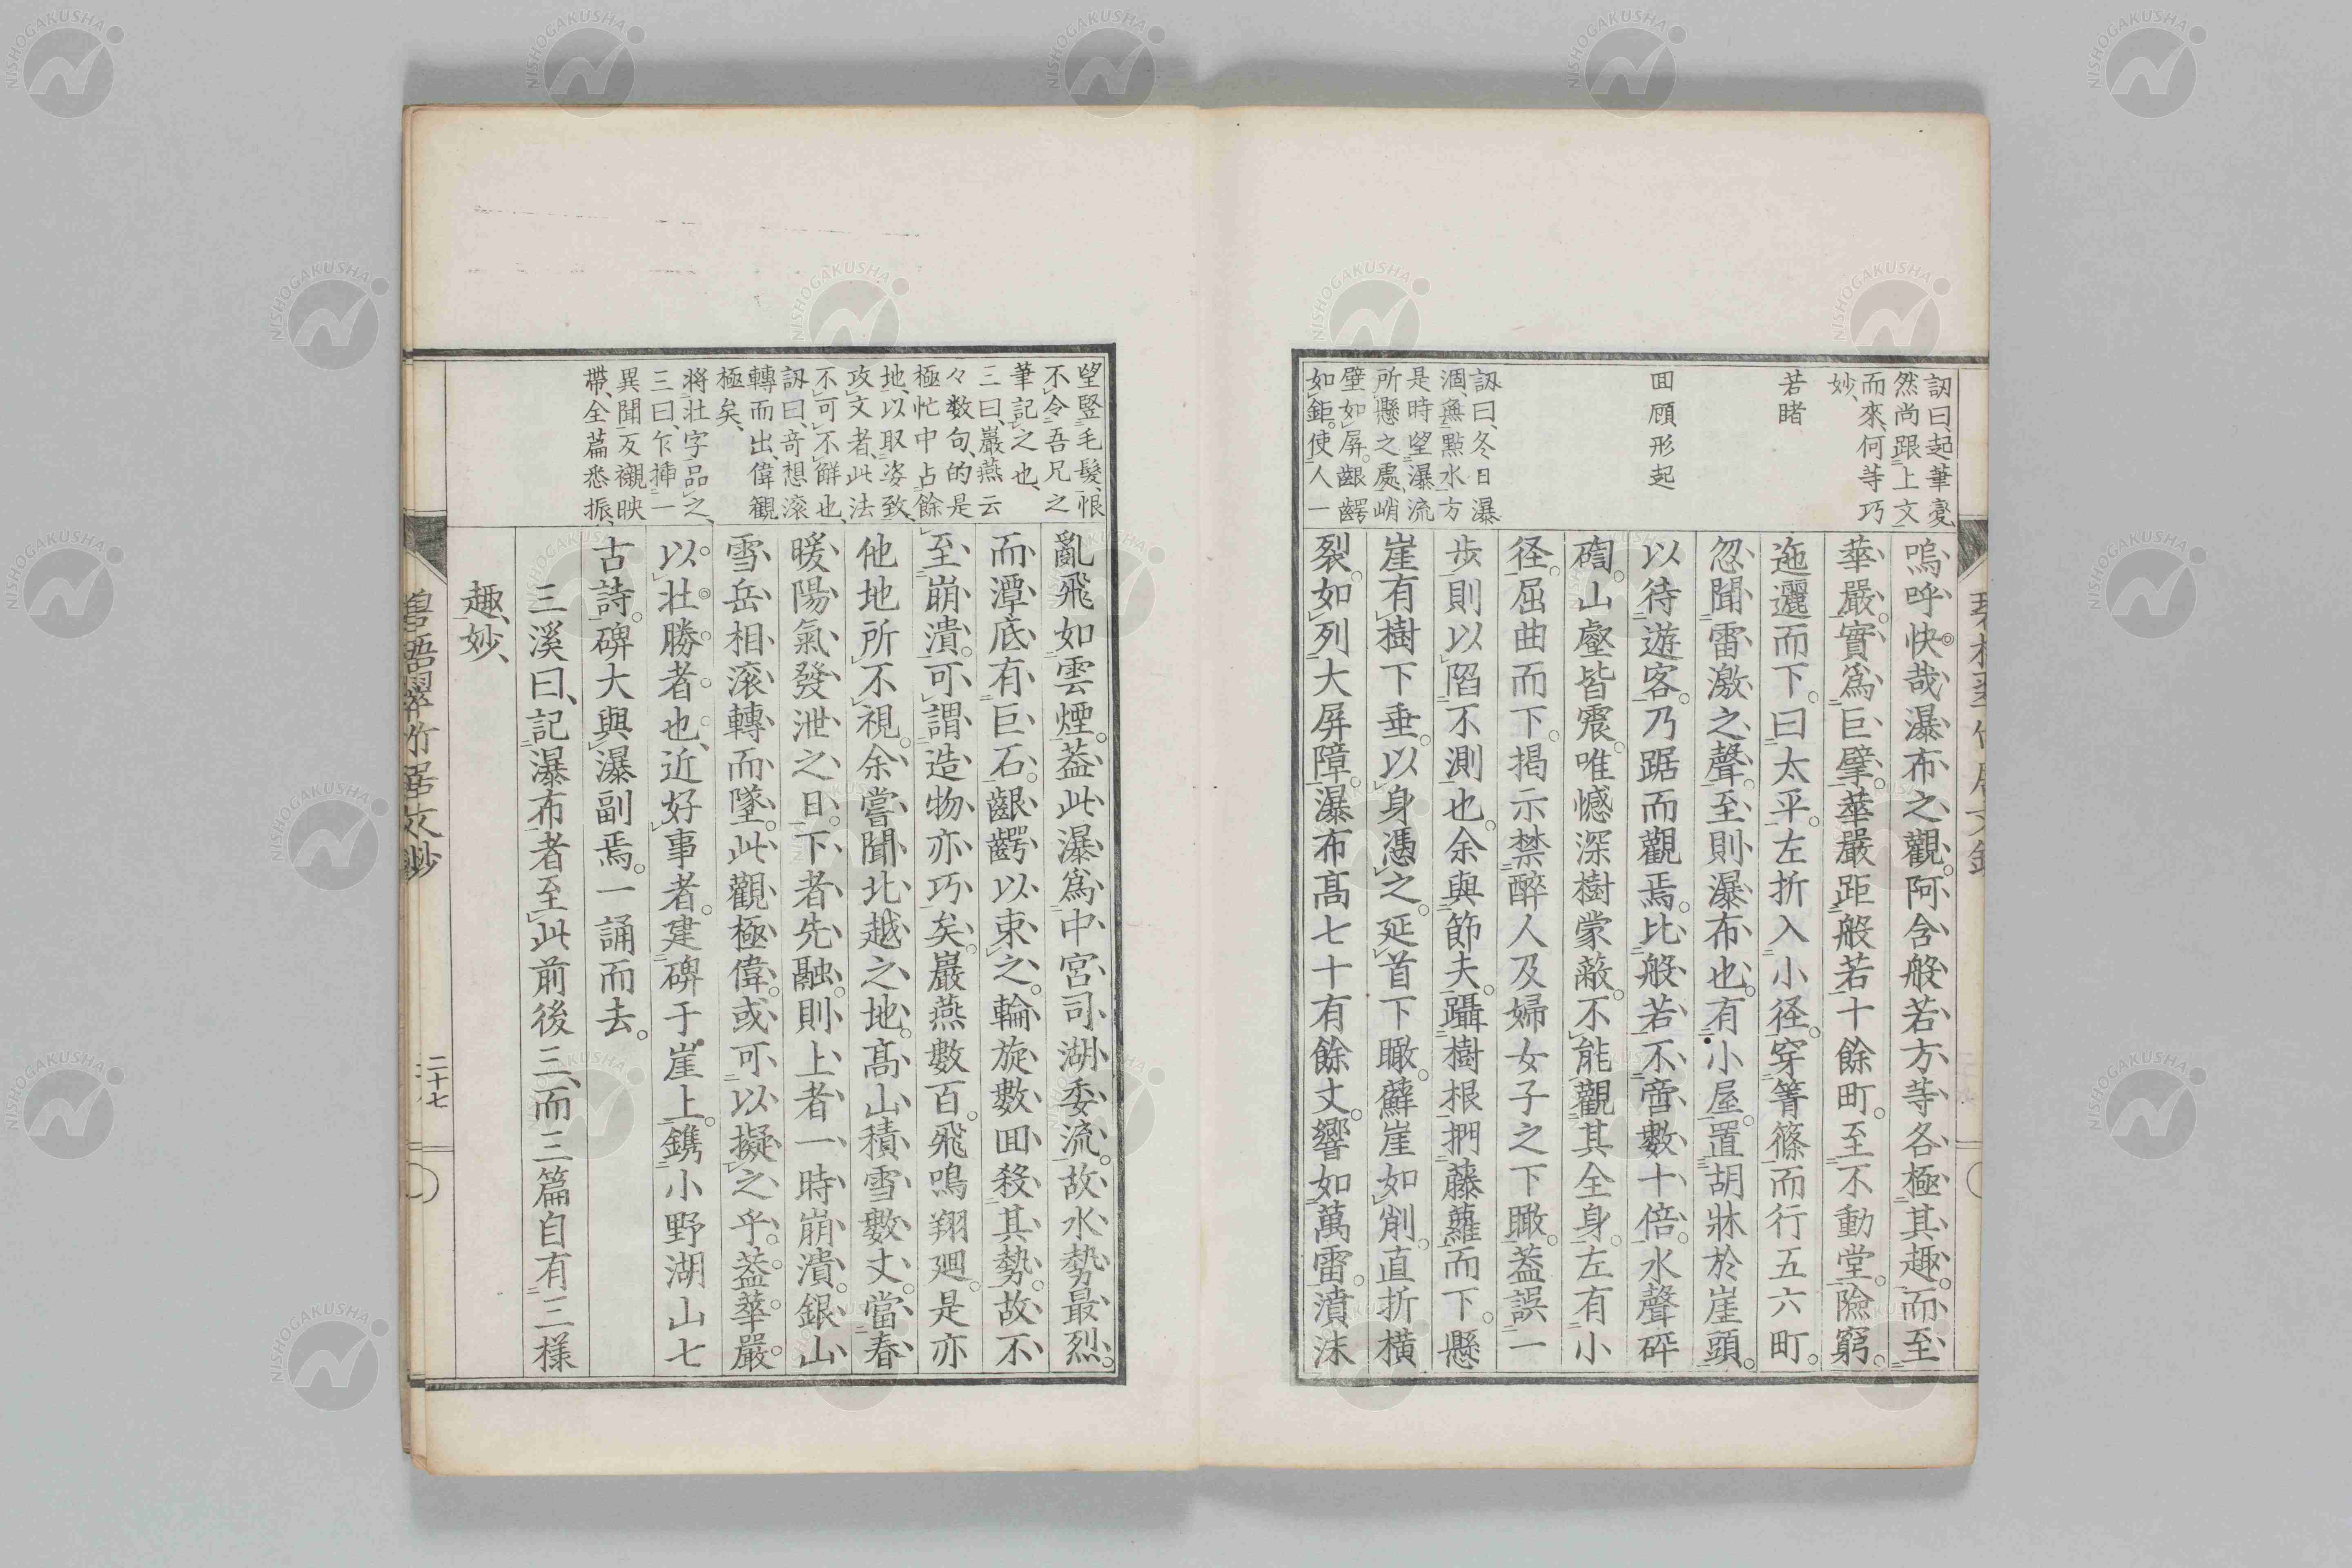 訒曰、起筆變
然尚跟上文
而來、何等巧
妙、
若睹
囬顧形起
訒曰、冬日瀑
涸、無點水、方
是時望瀑流
所懸之處、峭
壁如屏。齦齶
如鉅。使人一
嗚呼快哉瀑布之觀。阿含般若方等各極其趣。而至
華嚴。實爲巨擘。華嚴距般若十餘町。至不動堂。險窮。
迤邐而下。曰太平。左折入小径。穿箐篠而行五六町。
忽聞雷激之聲。至則瀑布也。有小屋。置胡牀於崖頭。
以待遊客。乃踞而觀焉。比般若不啻數十倍。水聲砰
磕。山壑皆震。唯憾深樹蒙蔽。不能觀其全身。左有小
径。屈曲而下。掲示禁醉人及婦女子之下瞰。蓋誤一
歩則以陷不測也。余與節夫。躡樹根捫藤蘿而下。懸
崖有樹下垂。以身憑之。延首下瞰。蘚崖如削。直折橫
裂。如列大屏障。瀑布高七十有餘丈。響如萬雷。濆沫
望竪毛髮、恨
不令吾兄之
筆記之也、
三曰、巖燕云
々数句、的是
極忙中占餘
地、以取姿致、
攻文者、此法
不可不觧也、
訒曰、奇想滚
轉而出、偉觀
極矣、
将壯字品之、
三曰、乍揷一
異聞反襯映
帶、全篇悉振、
亂飛如雲煙。蓋此瀑爲中宮司湖委流。故水勢最烈。
而潭底有巨石。齦齶以束之。輪旋數囬殺其勢。故不
至崩潰。可謂造物亦巧矣。巖燕數百。飛鳴翔廻。是亦
他地所不視。余嘗聞北越之地。高山積雪數丈。當春
暖陽氣發泄之日。下者先融。則上者一時崩潰。銀山
雪岳相滚轉而墜。此觀極偉。或可以擬之乎。蓋華嚴
以壯勝者也、近好事者。建碑于崖上。鐫小野湖山七
古詩。碑大與瀑副焉。一誦而去。
三溪曰、記瀑布者至此前後三、而三篇自有三樣
趣、妙、
碧梧翠竹居文鈔
二十七